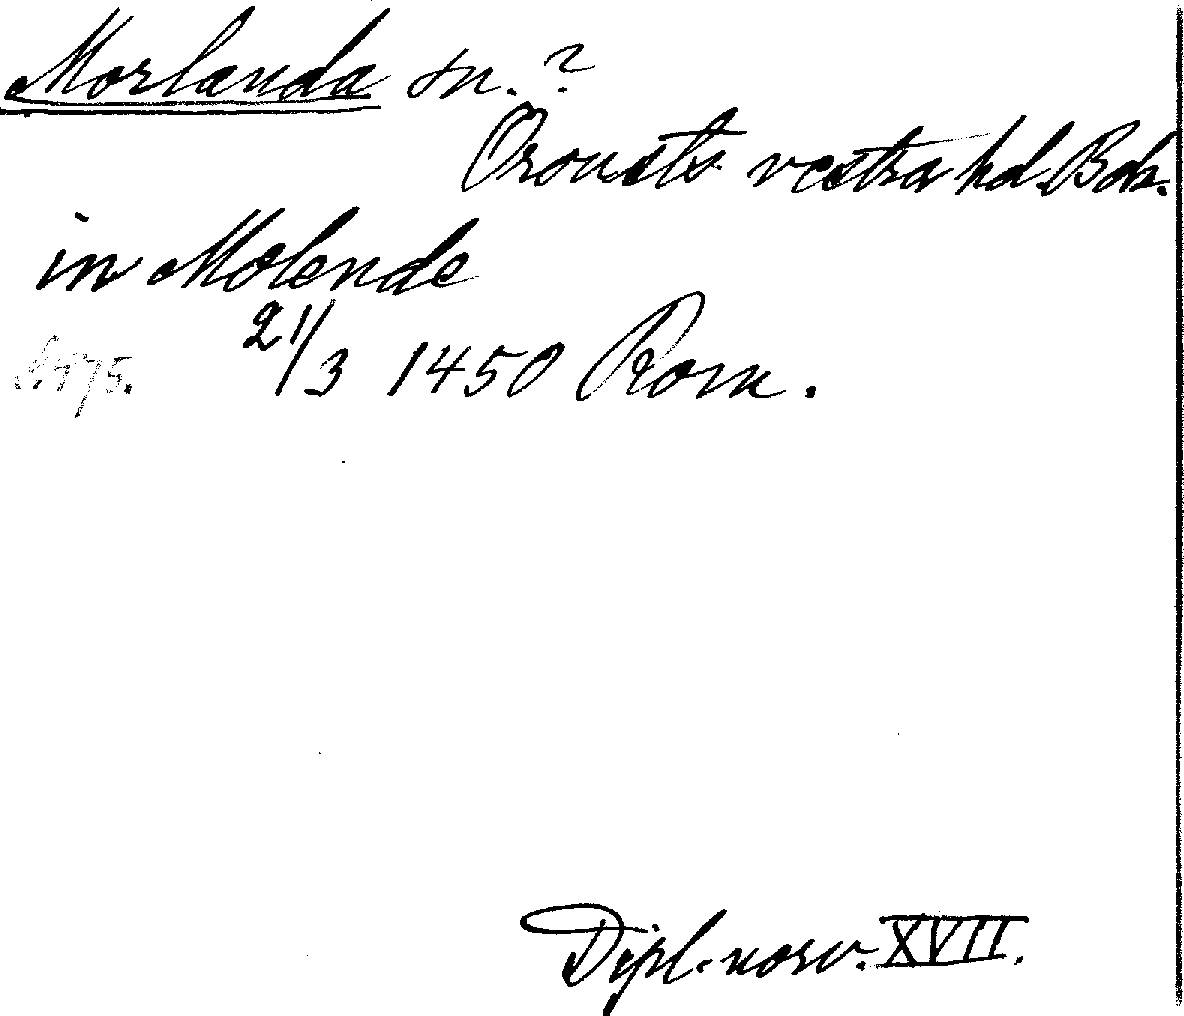 Morlanda sn.?
Orousts vestra hd. Boh.
in Molende
21/3 1450 Rom.
Dipl. norv. XVII.